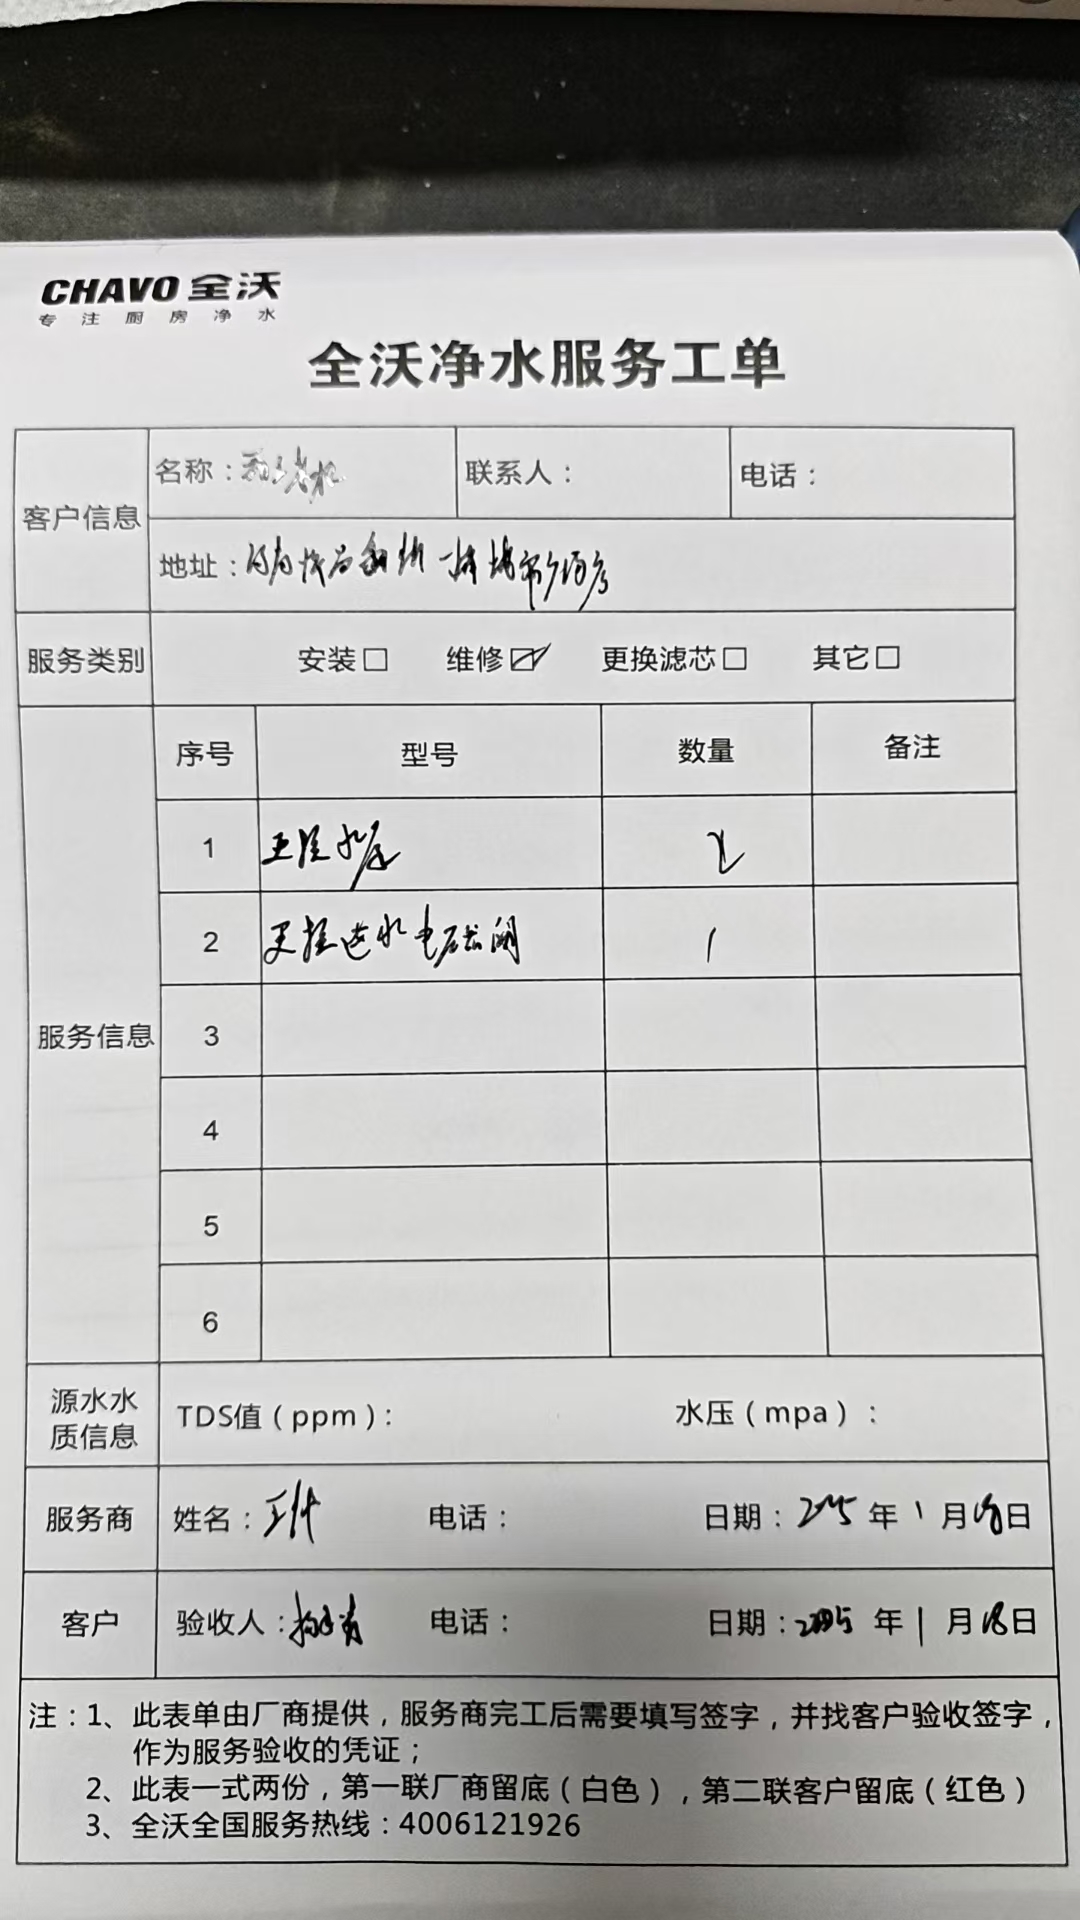 CHAVO 全沃
专注厨房净水
全沃净水服务工单
客户信息
名称：
联系人：
电话：
地址：
服务类别
安装□ 维修☑ 更换滤芯□ 其它□
服务信息
序号 型号 数量 备注
1
2 更换进水电磁阀 1
3
4
5
6
源水水质信息
TDS值（ppm）： 水压（mpa）：
服务商 姓名：王什 电话： 日期：2025 年 1 月 18 日
客户 验收人： 电话： 日期：2025 年 1 月 18 日
注：1、此表单由厂商提供，服务商完工后需要填写签字，并找客户验收签字，
作为服务验收的凭证；
2、此表一式两份，第一联厂商留底（白色），第二联客户留底（红色）
3、全沃全国服务热线：4006121926